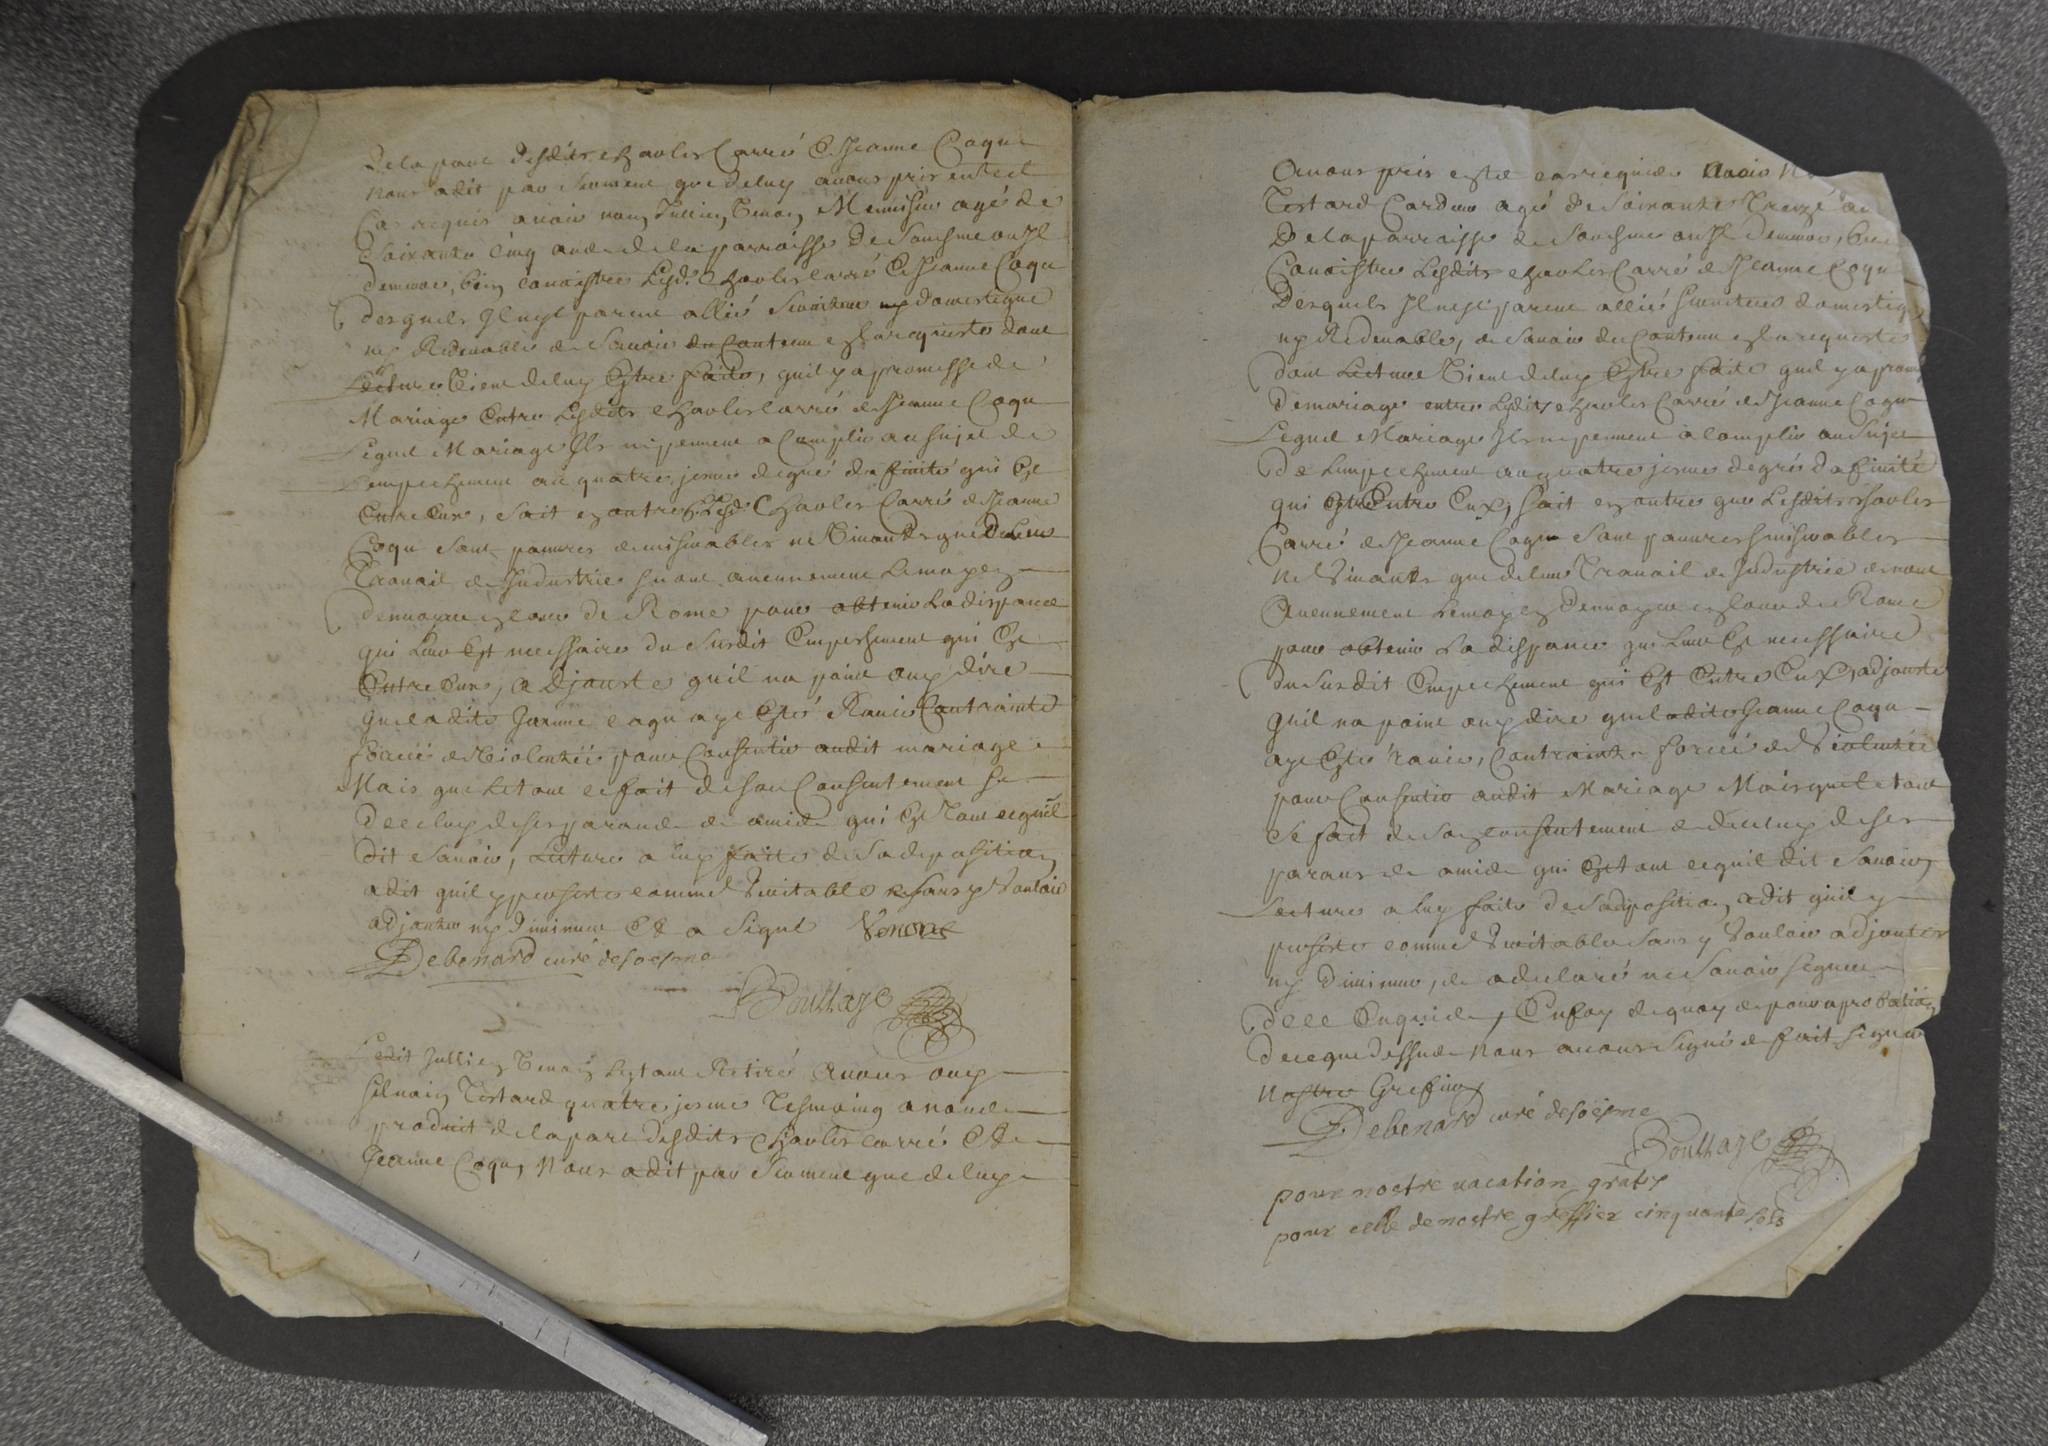 De la part desdits Charles Carré & Jeanne Coqu
Nous a dit par serment que de luy avons pris en tel
Cas requis avoir nom Jullien Menuisier agé de
Soixante cinq ans de la parroisse de ou Il
demeure, bien connoistre lesd. Charles Carré & Jeanne Coqu
desquels Il n'est parent allié serviteur ny domestique
ny Redevable de Scavoir du Contenu en la requeste dont
Lecture Vient de luy Estre faite, quil y a promesse de
Mariage Entre Lesdits Charles Carré & Jeanne Coqu
Lequel Mariage Ils ne peuvent acomplir au sujet de
Lempechement au quatriesme degré daffinité qui Est
Entre Eux, sait en outre que Lesd. Charles Carré & Jeanne
Coqu sont pauvres & miserables ne Vivants que de Leur
Travail & Industrie & nont aucunnement Le moyen
denvoyer en cour de Rome pour obtenir La dispance
qui Leur Est necessaire du Susdit Empechement qui Est
Entre Eux, a Adjousté quil na point ouy dire
que ladite Jeanne Coqu aye Esté Ravie Contrainte
forcée & Violentée pour Consentir audit mariage
Mais que Le tout ce fait de son Consentement &
De celuy de ses parans & amis qui Est Tout ce quil
dit Scavoir, Lecture a luy faite de Sa deposition
a dit quil y persiste comme Veritable & sans y Vouloir
adjouter ny diminuer Et a Signé
Debenard curé de soesme
Boulhaye
Ledit Jullien Estant Retiré Avons ouy
Silvain Testard quatriesme Tesmoing a nous
produit de la part desdits Charles Carré Et
Jeanne Coqu, Nous a dit par Serment que de luy
Avons pris en tel cas requis Avoir N
Testard Cardeur agé de Soixante Treize an
De la parroisse de ou Il demeure, bien
Conoistre Lesdits Charles Carré & Jeanne Coqu
Desquels Il nest parent allié Serviteur domestiq
ny Redevable, & Scavoir du Contenu en la requeste
dont Lecture Vient de luy Estre faite quil y a prom
de mariage entre Lesdits Charles Carré & Jeanne Coqu
Lequel Mariage Ils ne peuvent acomplir au Sujet
De Lempechement au quatriesme degré daffinité
qui Est Entre Eux, Sait en outre que Lesdits Charles
Carré & Jeanne Coqu Sont pauvres & miserables
Ne Vivants que de leur Travail & Industrie & nont
Aucunnement Le moyen denvoyer en Cour de Rome
pour obtenir La dispance qui Leur Est necessaire
du Susdit Empechement qui Est Entre Eux, adjouste
quil na point ouy dire que ladite Jeanne Coqu
aye Esté Ravie, Contrainte forcée & Violentée
pour Consentir audit Mariage Mais que Le tout
Se fait de Son consentement & de celuy de ses
parans & amis qui Est tout ce quil dit Scavoir,
Lecture a luy faite de Sa deposition a dit quil y
persiste comme Veritable Sans y Vouloir adjouter
ny Diminuer, & a declaré ne Scavoir Signer
De ce Enquis, En foy de quoy & pour aprobation
De ce que dessus Nous avons Signé & fait Signer
Nostre Grefier
Debenard curé de soesme
Boulhaye
pour nostre vacation gratis
pour celle de nostre greffier cinquante sols